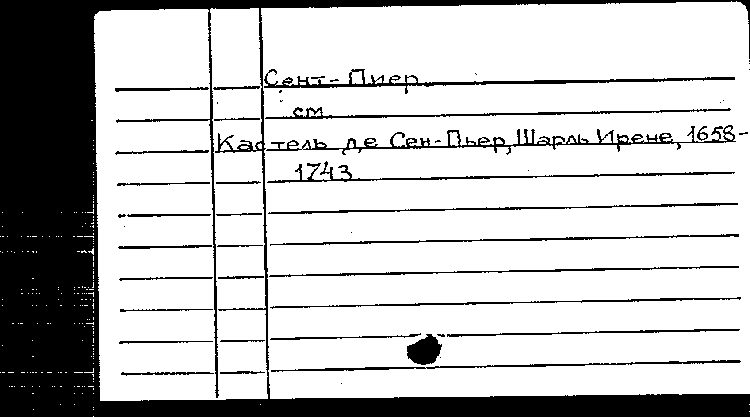 Сент-Пиер
см.
Кастель де Сен-Пьер, Шарль Ирене, 1658-
1743